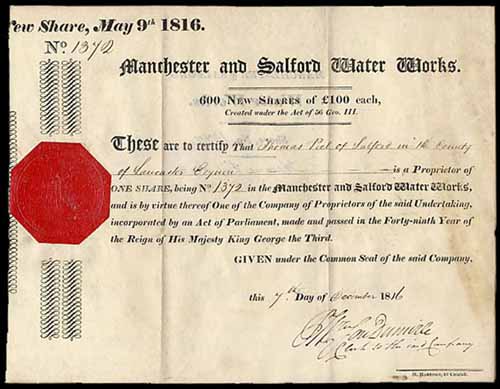 New Share, May 9th 1816.
No. 1372
Manchester and Salford Water Works.
600 New Shares of £100 each,
Created under the Act of 56 Geo. III.
These are to certify That Thomas Peel of Salford in the County
of Lancaster Esquire is a Proprietor of
ONE SHARE, being No. 1372 in the Manchester and Salford Water Works,
and is by virtue thereof One of the Company of Proprietors of the said Undertaking,
incorporated by an Act of Parliament, made and passed in the Forty-ninth Year of
the Reign of His Majesty King George the Third.
GIVEN under the Common Seal of the said Company,
this 7th Day of December 1816
Clerk to the said Company